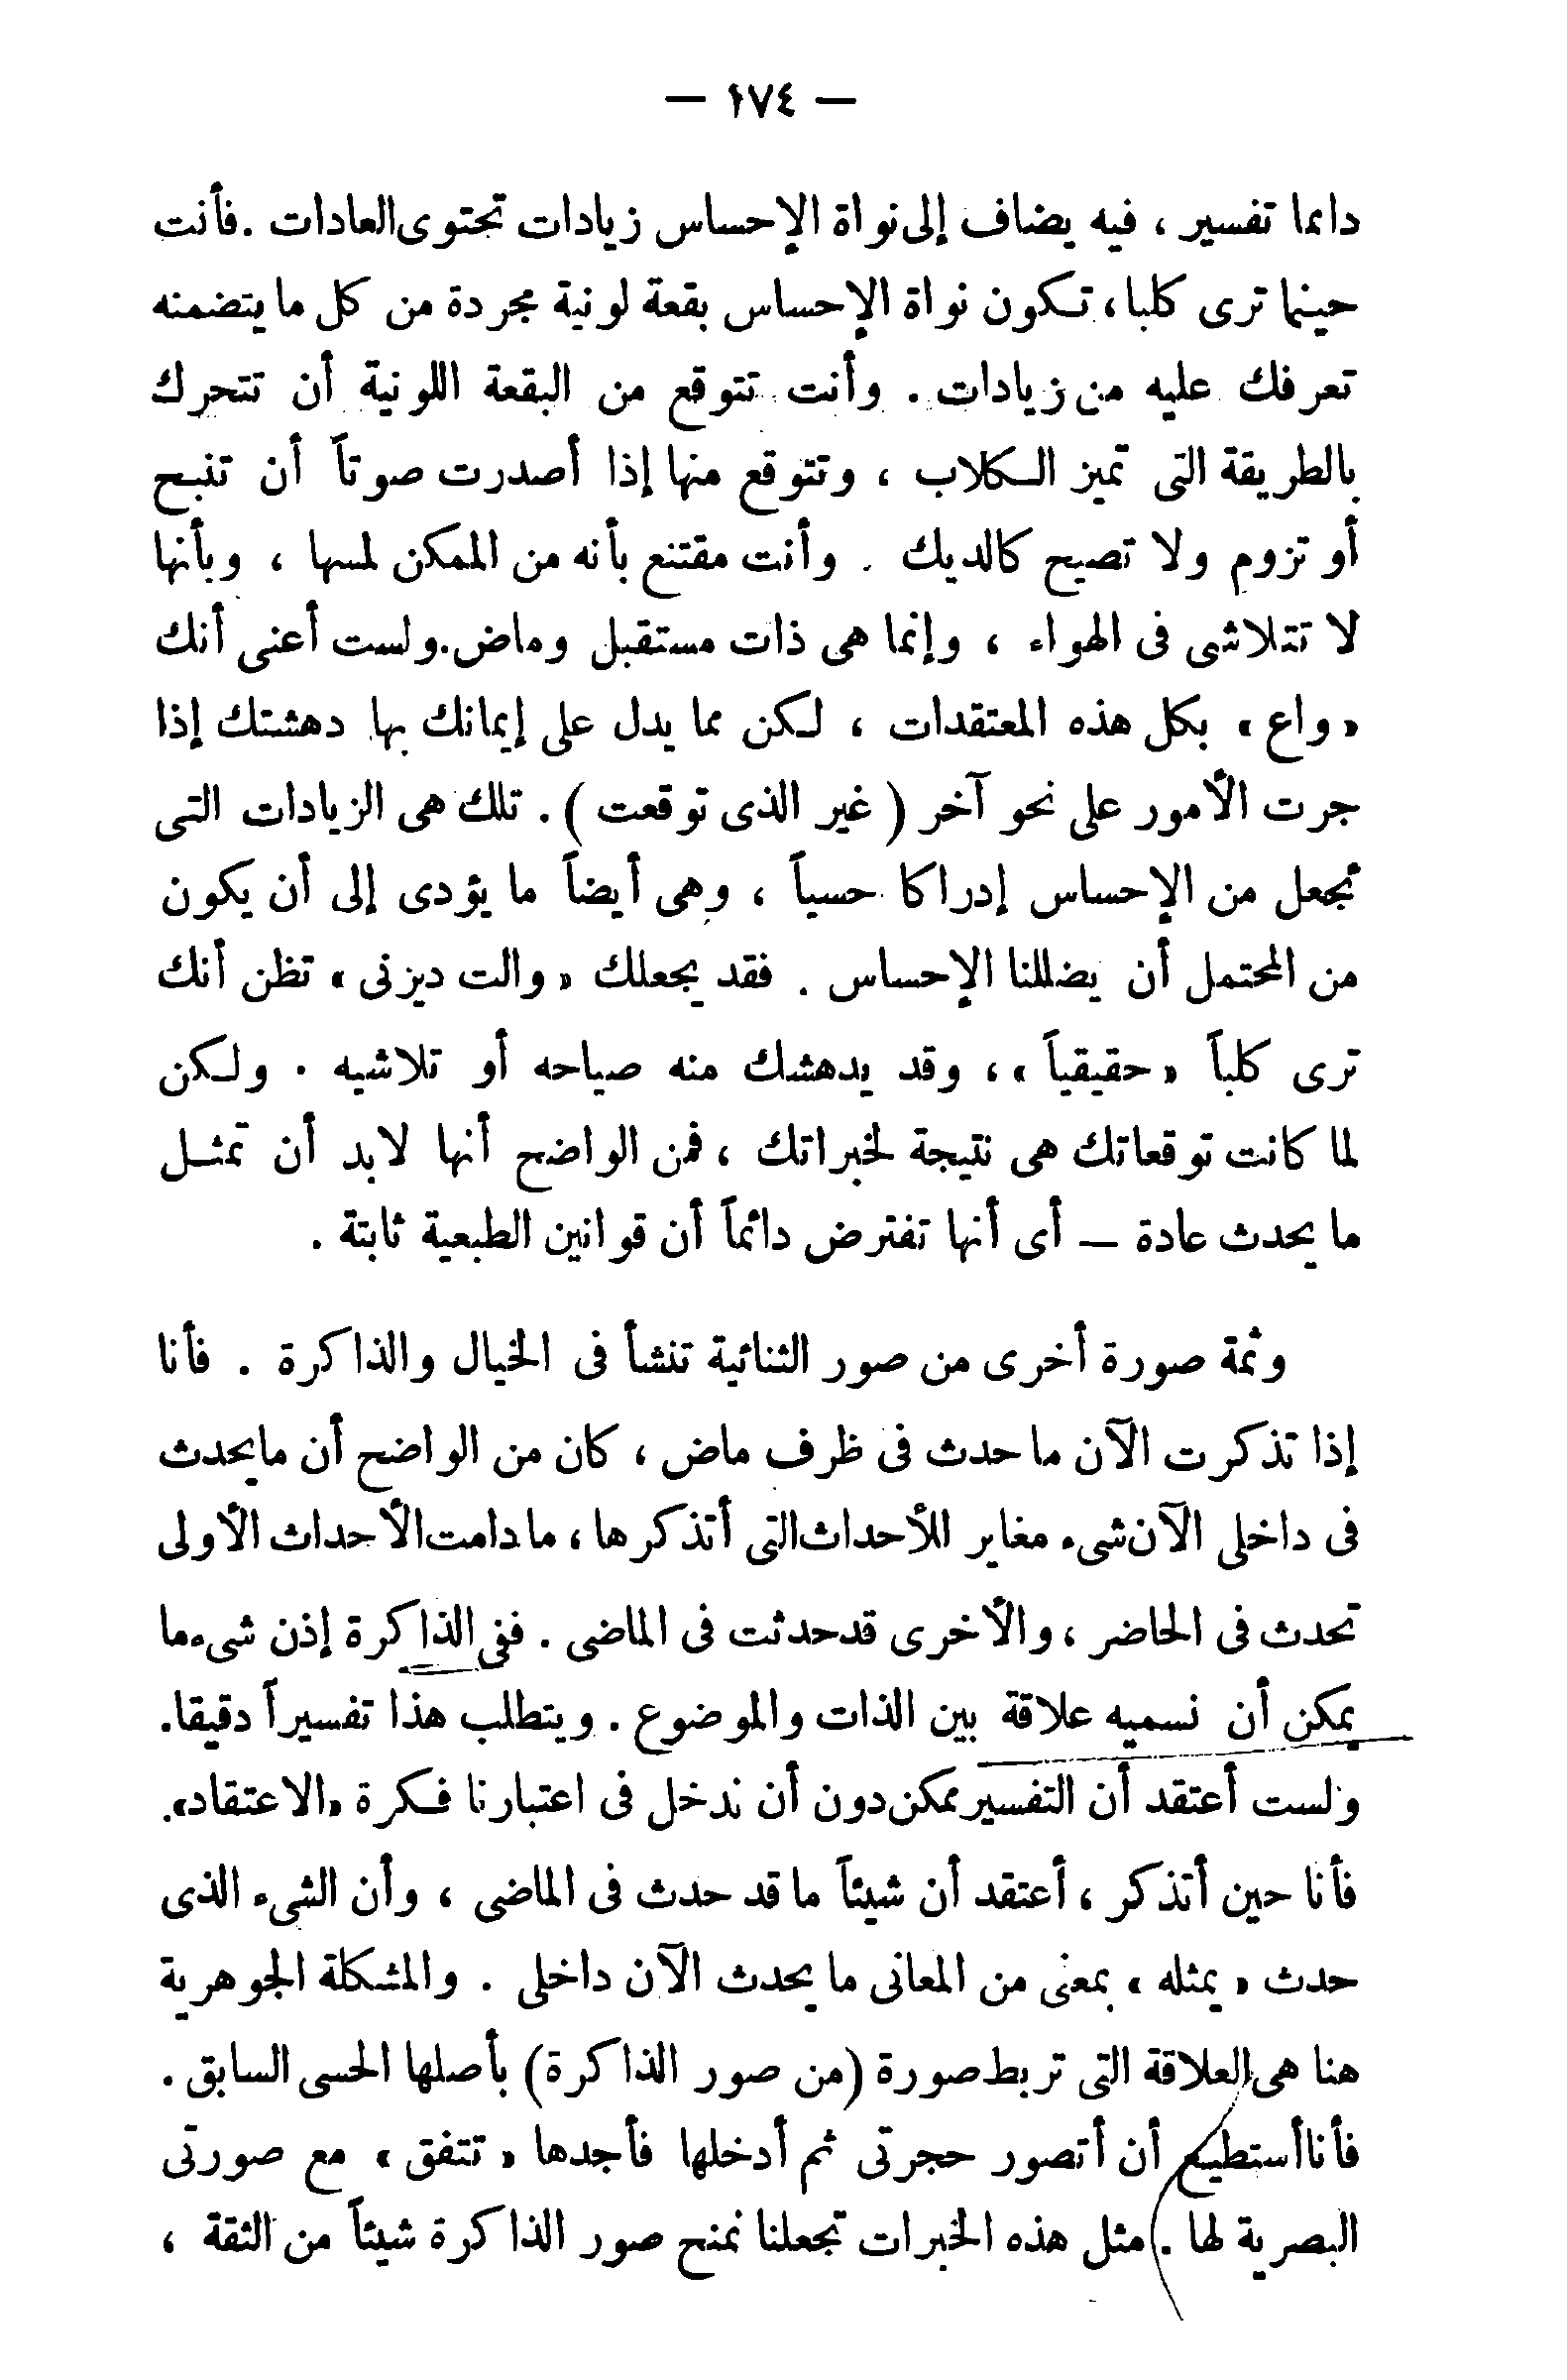 — ١٧٤ —
دائما تفسير ، فيه يضاف إلى نواة الإحساس زيادات تحتوى العادات . فأنت
حينما ترى كلبا ، تكون نواة الإحساس بقعة لونية مجردة من كل ما يتضمنه
تعرفك عليه من زيادات . وأنت تتوقع من البقعة اللونية أن تتحرك
بالطريقة التى تميز الكلاب ، وتتوقع منها إذا أصدرت صوتاً أن تنبح
أو تزوم ولا تصيح كالديك . وأنت مقتنع بأنه من الممكن لمسها ، وبأنها
لا تتلاشى فى الهواء ، وإنما هى ذات مستقبل وماض . ولست أعنى أنك
« واع » بكل هذه المعتقدات ، لكن مما يدل على إيمانك بها دهشتك إذا
جرت الأمور على نحو آخر ( غير الذى توقعت ) . تلك هى الزيادات التى
تجعل من الإحساس إدراكا حسياً ، وهى أيضاً ما يؤدى إلى أن يكون
من المحتمل أن يضللنا الإحساس . فقد يجعلك « والت ديزنى » تظن أنك
ترى كلباً « حقيقياً » ، وقد يدهشك منه صياحه أو تلاشيه . ولكن
لما كانت توقعاتك هى نتيجة لخبراتك ، فمن الواضح أنها لابد أن تمثل
ما يحدث عادة — أى أنها تفترض دائماً أن قوانين الطبعية ثابتة .
وثمة صورة أخرى من صور الثنائية تنشأ فى الخيال والذاكرة . فأنا
إذا تذكرت الآن ما حدث فى ظرف ماض ، كان من الواضح أن مايحدث
فى داخلى الآن شىء مغاير للأحداث التى أتذكرها ، مادامت الأحداث الأولى
تحدث فى الحاضر ، والأخرى قد حدثت فى الماضى . ففى الذاكرة إذن شىء ما
يمكن أن نسميه علاقة بين الذات والموضوع . ويتطلب هذا تفسيراً دقيقا .
ولست أعتقد أن التفسير ممكن دون أن ندخل فى اعتبارنا فكرة «الاعتقاد» .
فأنا حين أتذكر ، أعتقد أن شيئاً ما قد حدث فى الماضى ، وأن الشىء الذى
حدث « يمثله » بمعنى من المعانى ما يحدث الآن داخلى . والمشكلة الجوهرية
هنا هى العلاقة التى تربط صورة (من صور الذاكرة) بأصلها الحسى السابق .
فأنا أستطيع أن أتصور حجرتى ثم أدخلها فأجدها « تتفق » مع صورتى
البصرية لها . مثل هذه الخبرات تجعلنا نمنح صور الذاكرة شيئاً من الثقة ،